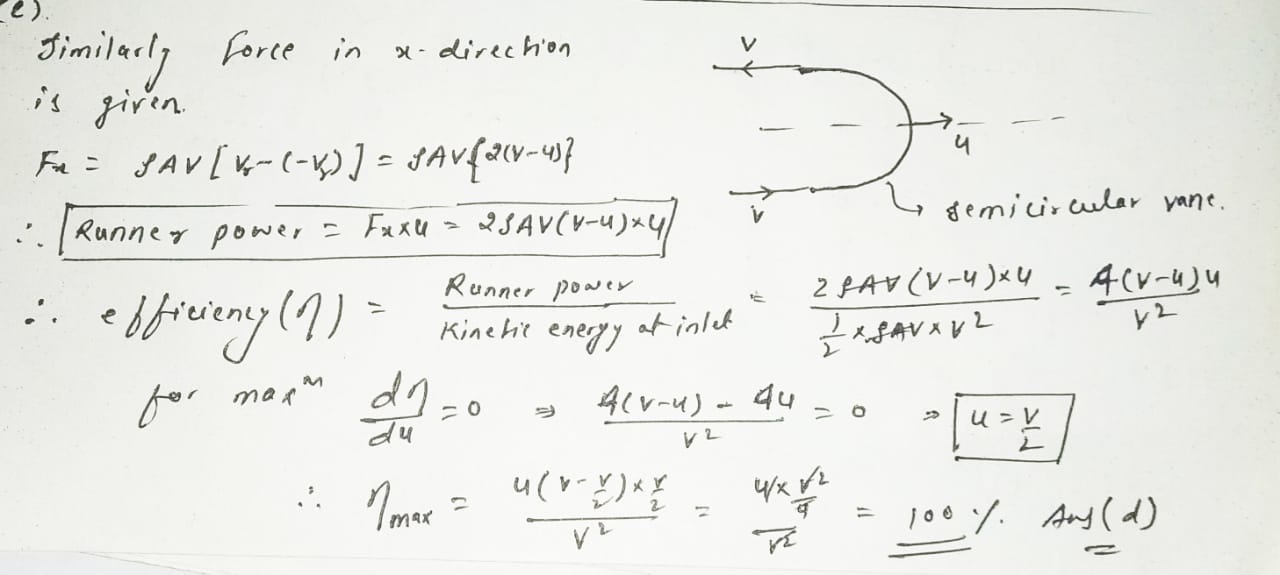 (e).
Similarly force in x-direction
is given.
Fx = ρAV[Vr-(-Vr)] = ρAV{2(V-u)}
∴ Runner power = Fx×u = 2ρAV(V-u)×u
∴ efficiency(η) = Runner power / Kinetic energy at inlet = 2ρAV(V-u)×u / ½×ρAV×V² = 4(V-u)u / V²
for maxᵐ dη/du = 0 ⇒ 4(V-u) - 4u / V² = 0 ⇒ u = V/2
∴ ηmax = 4(V-V/2)×V/2 / V² = 4×V²/4 / V² = 100 %. Ans(d)
V
u
V
semicircular vane.